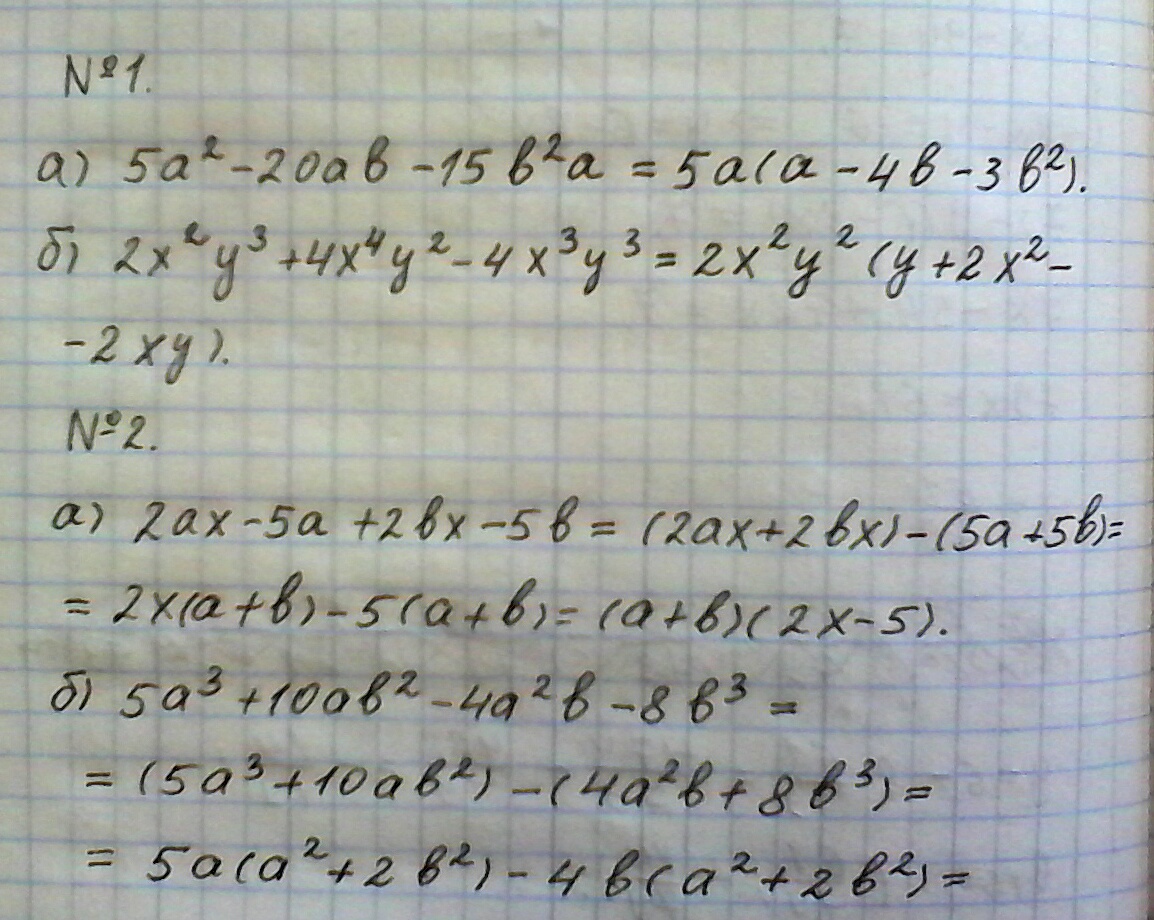 №1.
а) 5a² - 20ab - 15b²a = 5a(a - 4b - 3b²).
б) 2x²y³ + 4x⁴y² - 4x³y³ = 2x²y²(y + 2x² -
- 2xy).
№2.
а) 2ax - 5a + 2bx - 5b = (2ax + 2bx) - (5a + 5b) =
= 2x(a + b) - 5(a + b) = (a + b)(2x - 5).
б) 5a³ + 10ab² - 4a²b - 8b³ =
= (5a³ + 10ab²) - (4a²b + 8b³) =
= 5a(a² + 2b²) - 4b(a² + 2b²) =